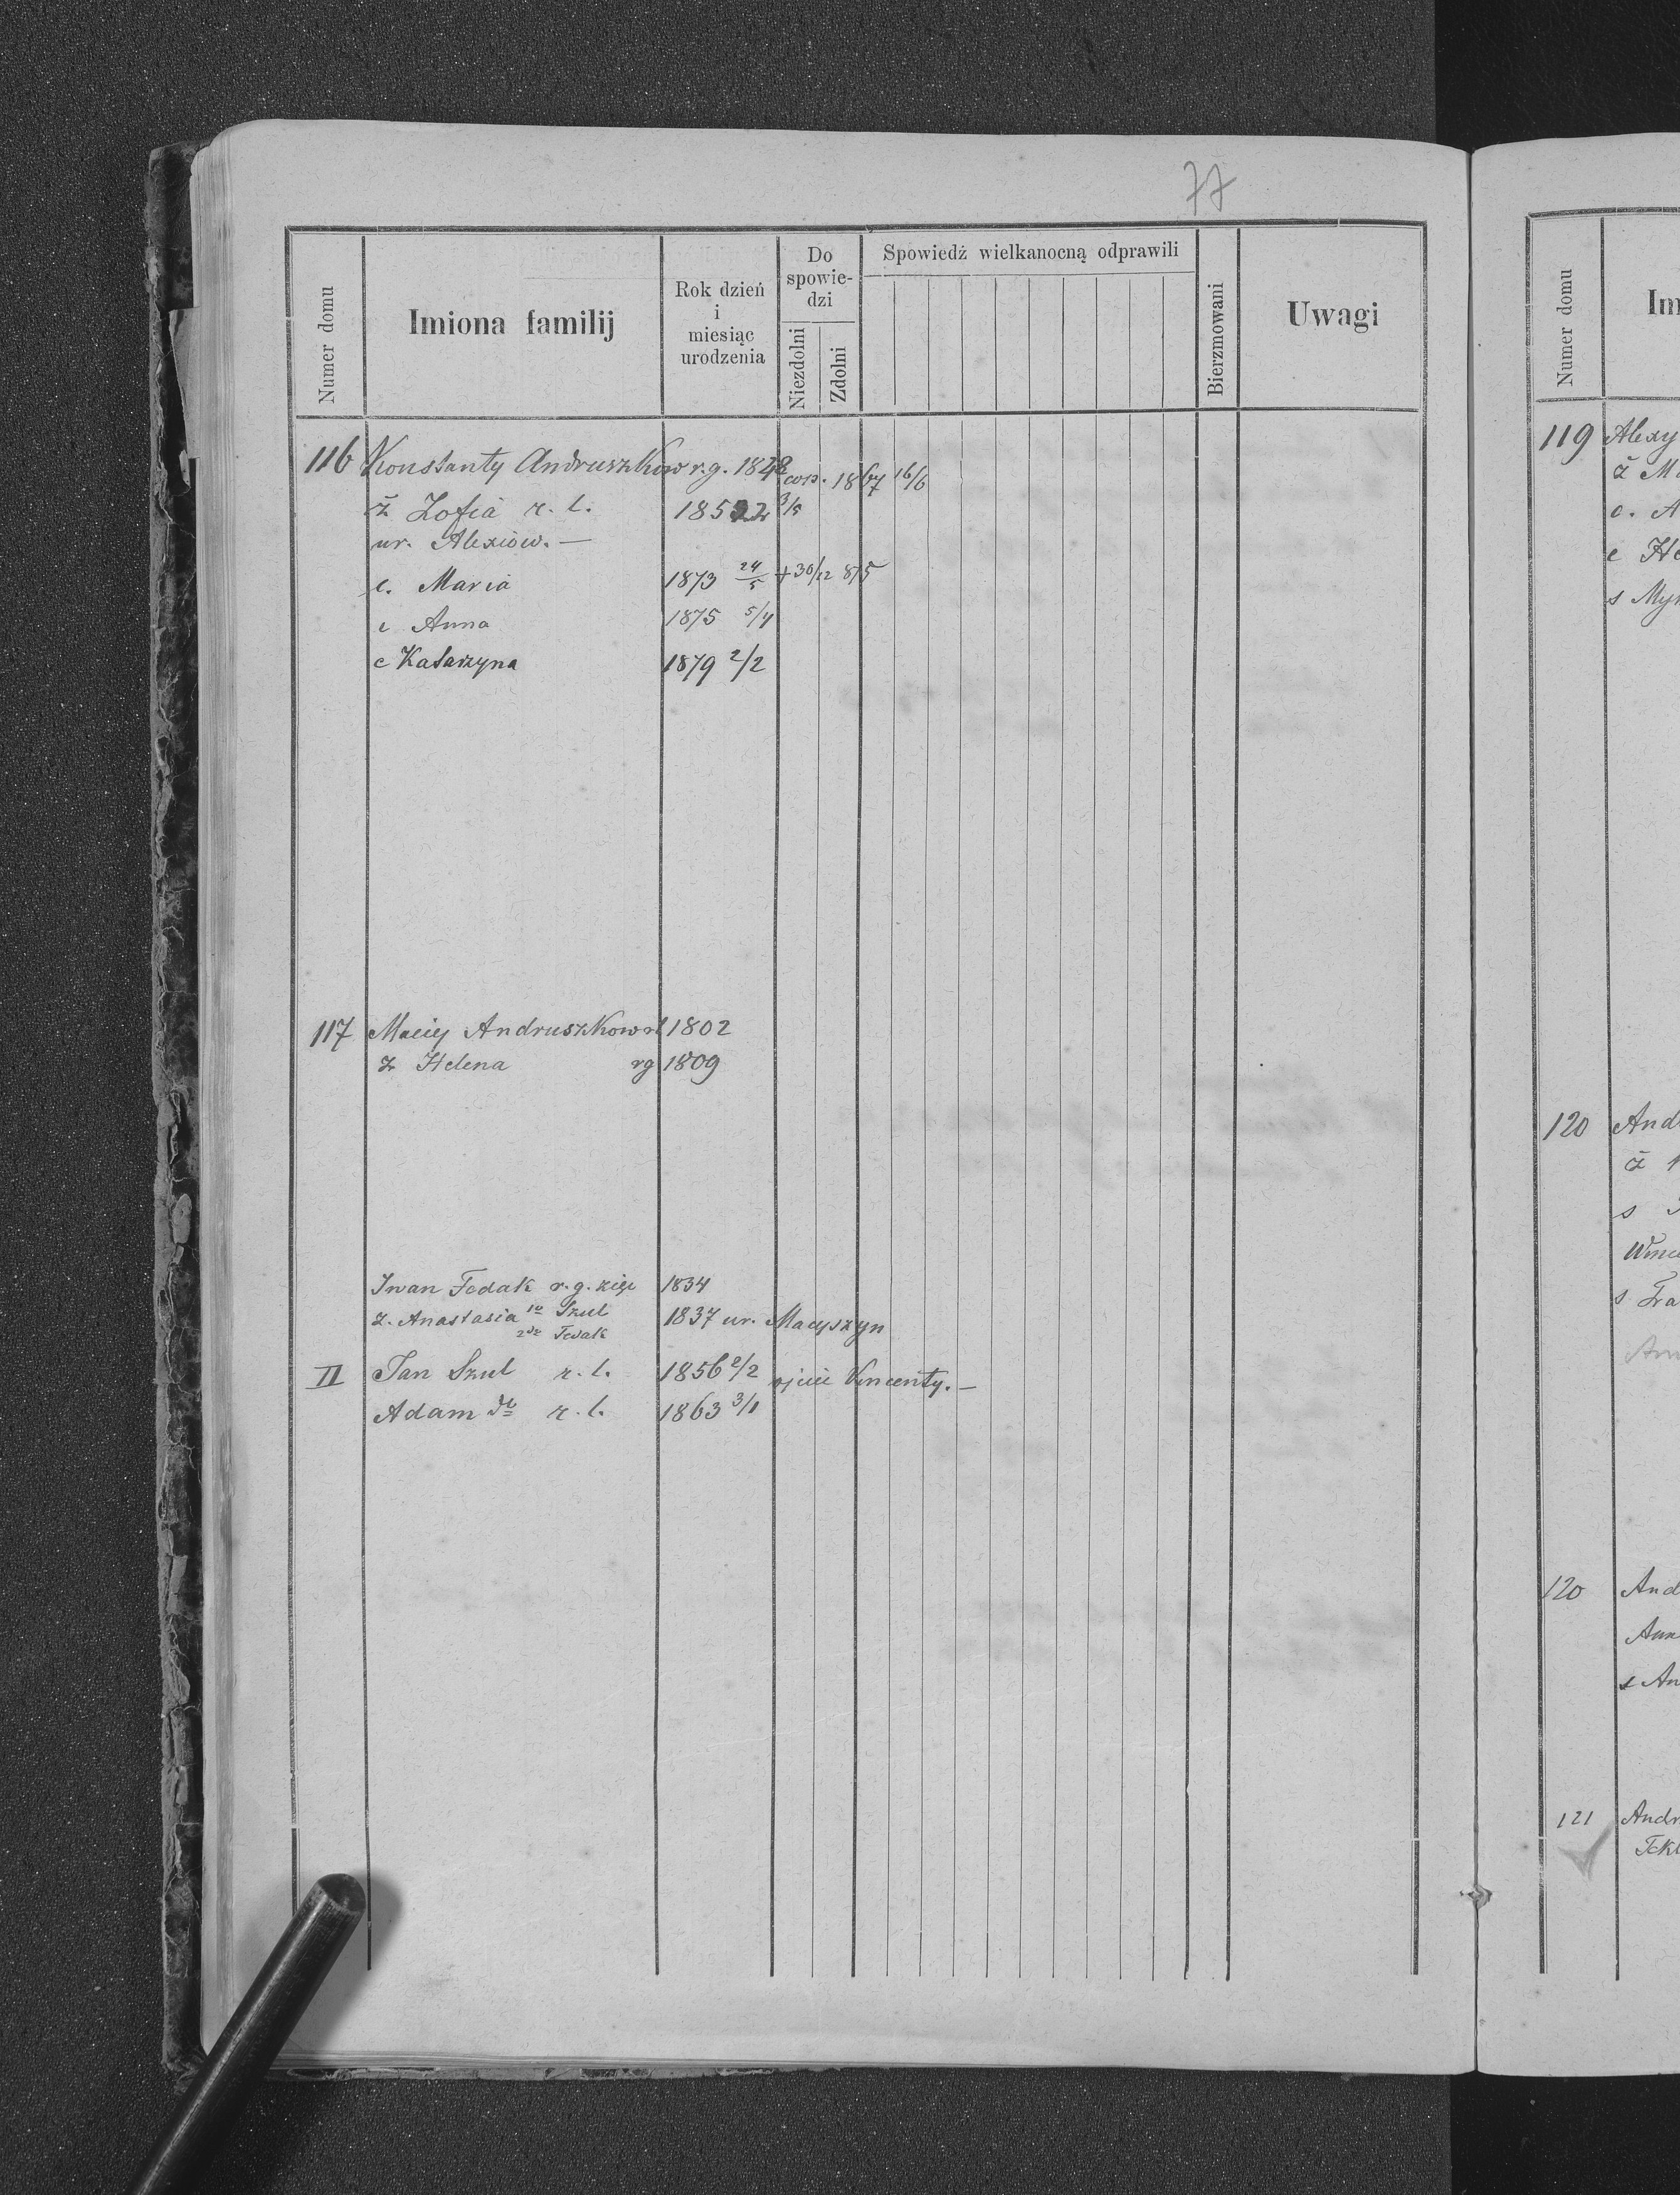 77
Numer domu
Imiona familij
Rok dzień
i
miesiąc
urodzenia
Do
spowie-
dzi
Niezdolni
Zdolni
Spowiedź wielkanocną odprawili
Bierzmowani
Uwagi
116 Konstanty Andruszków r. g. 1848 cop. 1867 16/6
ż Zofia r. l. 1852 3/5
ur. Alexiów. —
c. Maria 1873 24/5 + 30/12 875
c Anna 1875 5/4
c Katarzyna 1879 2/2
117 Maciej Andruszków rl 1802
ż Helena rg 1809
Iwan Fedak r. g. zięć 1834
ż. Anastasia 1o Szul 1837 ur. Macyszyn
2do Fedak
II Jan Szul r. l. 1856 2/2 ojciec Vincenty. —
Adam dto r. l. 1863 3/1
Numer domu
Im
119 Alexy
ż M
c. A
c He
s Myk
120 And
ż
s
Wince
s Fra
120 And
Ann
s An
121 Andr
Tekl